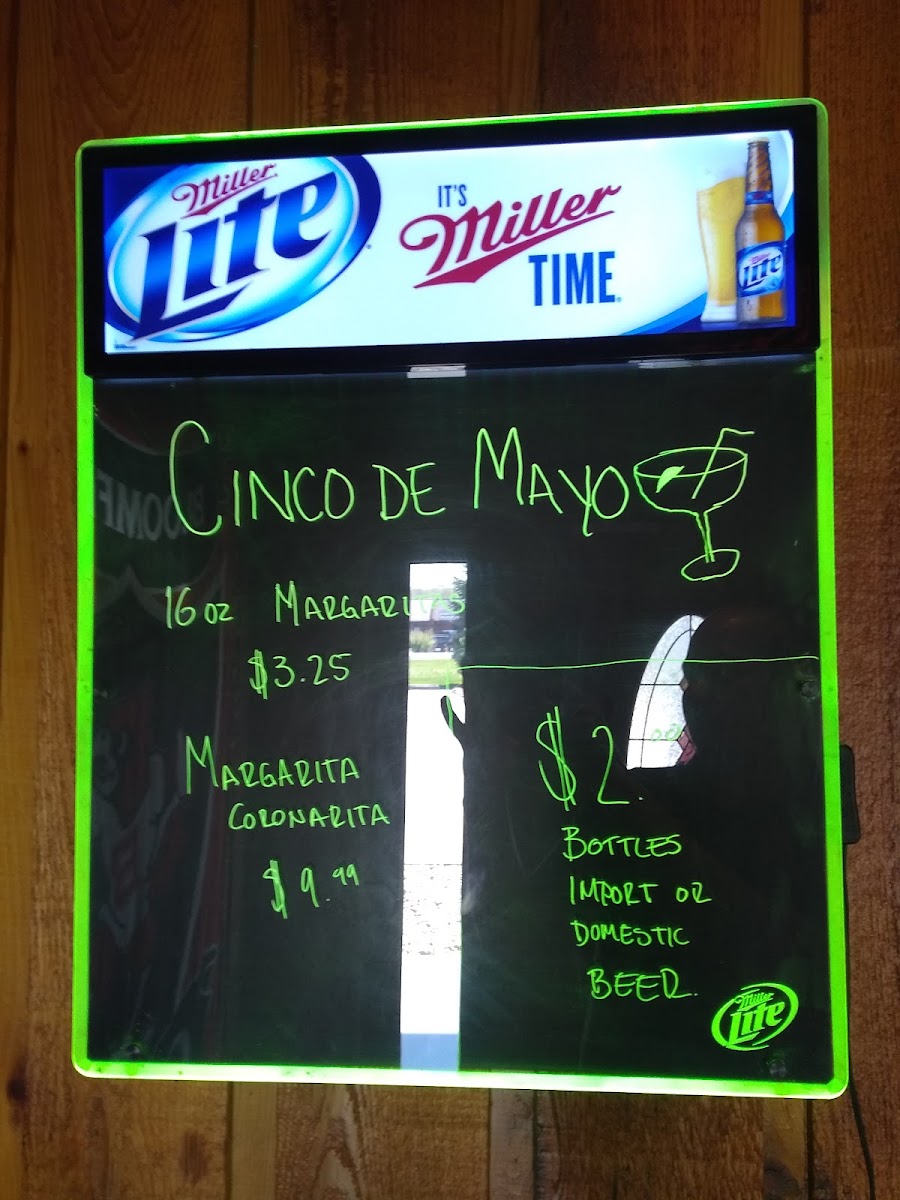 Miller
Lite
IT'S
Miller
TIME
Lite
CINCO DE MAYO
16 OZ MARGARITAS
$3.25
MARGARITA
CORONARITA
$9.99
$2.00
BOTTLES
IMPORT OR
DOMESTIC
BEER.
Miller
Lite